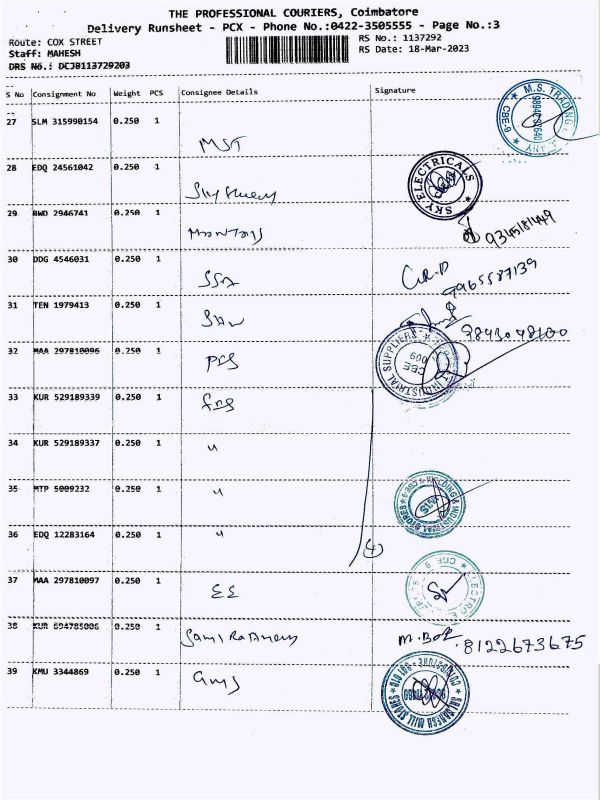 THE PROFESSIONAL COURIERS, Coimbatore
Delivery Runsheet - PCX - Phone No.:0422-3505555 - Page No.:3
Route: COX STREET
RS No.: 1137292
Staff: MAHESH
RS Date: 18-Mar-2023
DRS No.: DCJB113729203
S No Consignment No Weight PCS Consignee Details Signature
27 SLM 315990154 0.250 1 MST
M.S. TRADING CBE-9
28 EDQ 24561042 0.250 1 Sky
SKY ELECTRICALS
29 BWD 2946741 0.250 1
9345181449
30 DDG 4546031 0.250 1 SSA
9965587139
31 TEN 1979413 0.250 1
32 MAA 297810096 0.250 1 PCS
INDUSTRIAL SUPPLIERS CBE 009
33 KUR 529189339 0.250 1
34 KUR 529189337 0.250 1 "
35 MTP 5009232 0.250 1 "
WELDING & INDUSTRIAL STORES CBE-9
36 EDQ 12283164 0.250 1 "
4
37 MAA 297810097 0.250 1 EE
CBE 9
38 KUR 694785006 0.250 1 Sami
8122673675
39 KMU 3344869 0.250 1 GMS
SRI GANESH MILL STORES COIMBATORE